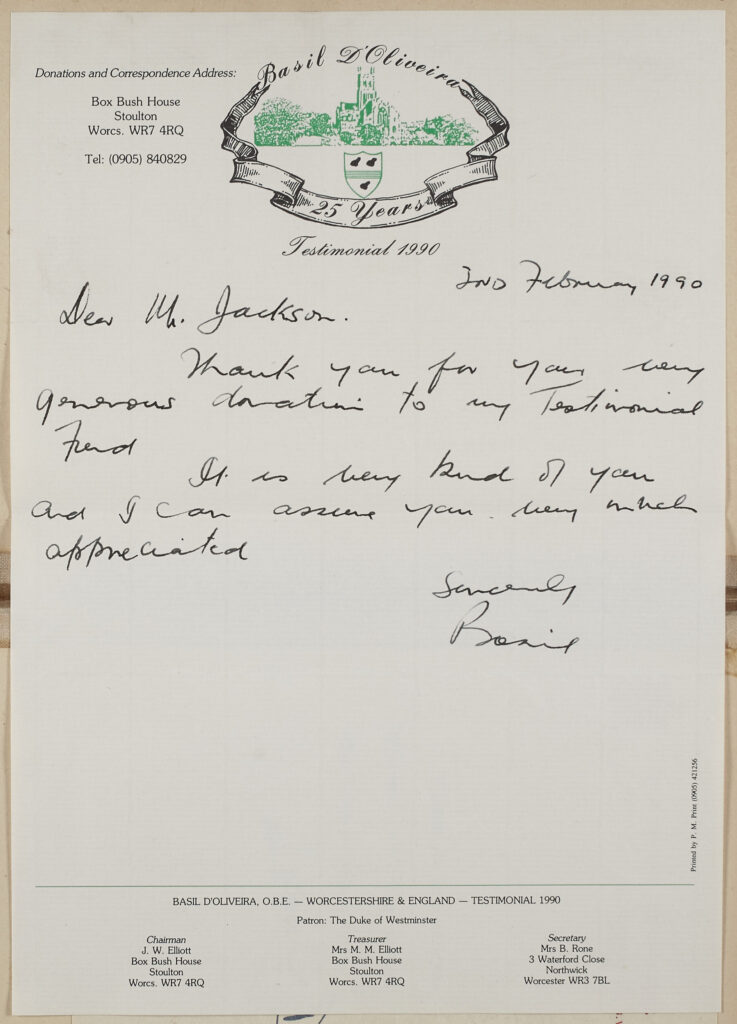 Donations and Correspondence Address:
Box Bush House
Stoulton
Worcs. WR7 4RQ
Tel: (0905) 840829
Basil D'Oliveira
25 Years
Testimonial 1990
2ND February 1990
Dear Mr. Jackson.
Thank you for your very
generous donation to my Testimonial
Fund
It is very kind of you
and I can assure you very much
appreciated
Sincerely
Basil
Printed by P. M. Print (0905) 421256
BASIL D'OLIVEIRA, O.B.E. — WORCESTERSHIRE & ENGLAND — TESTIMONIAL 1990
Patron: The Duke of Westminster
Chairman
J. W. Elliott
Box Bush House
Stoulton
Worcs. WR7 4RQ
Treasurer
Mrs M. M. Elliott
Box Bush House
Stoulton
Worcs. WR7 4RQ
Secretary
Mrs B. Rone
3 Waterford Close
Northwick
Worcester WR3 7BL